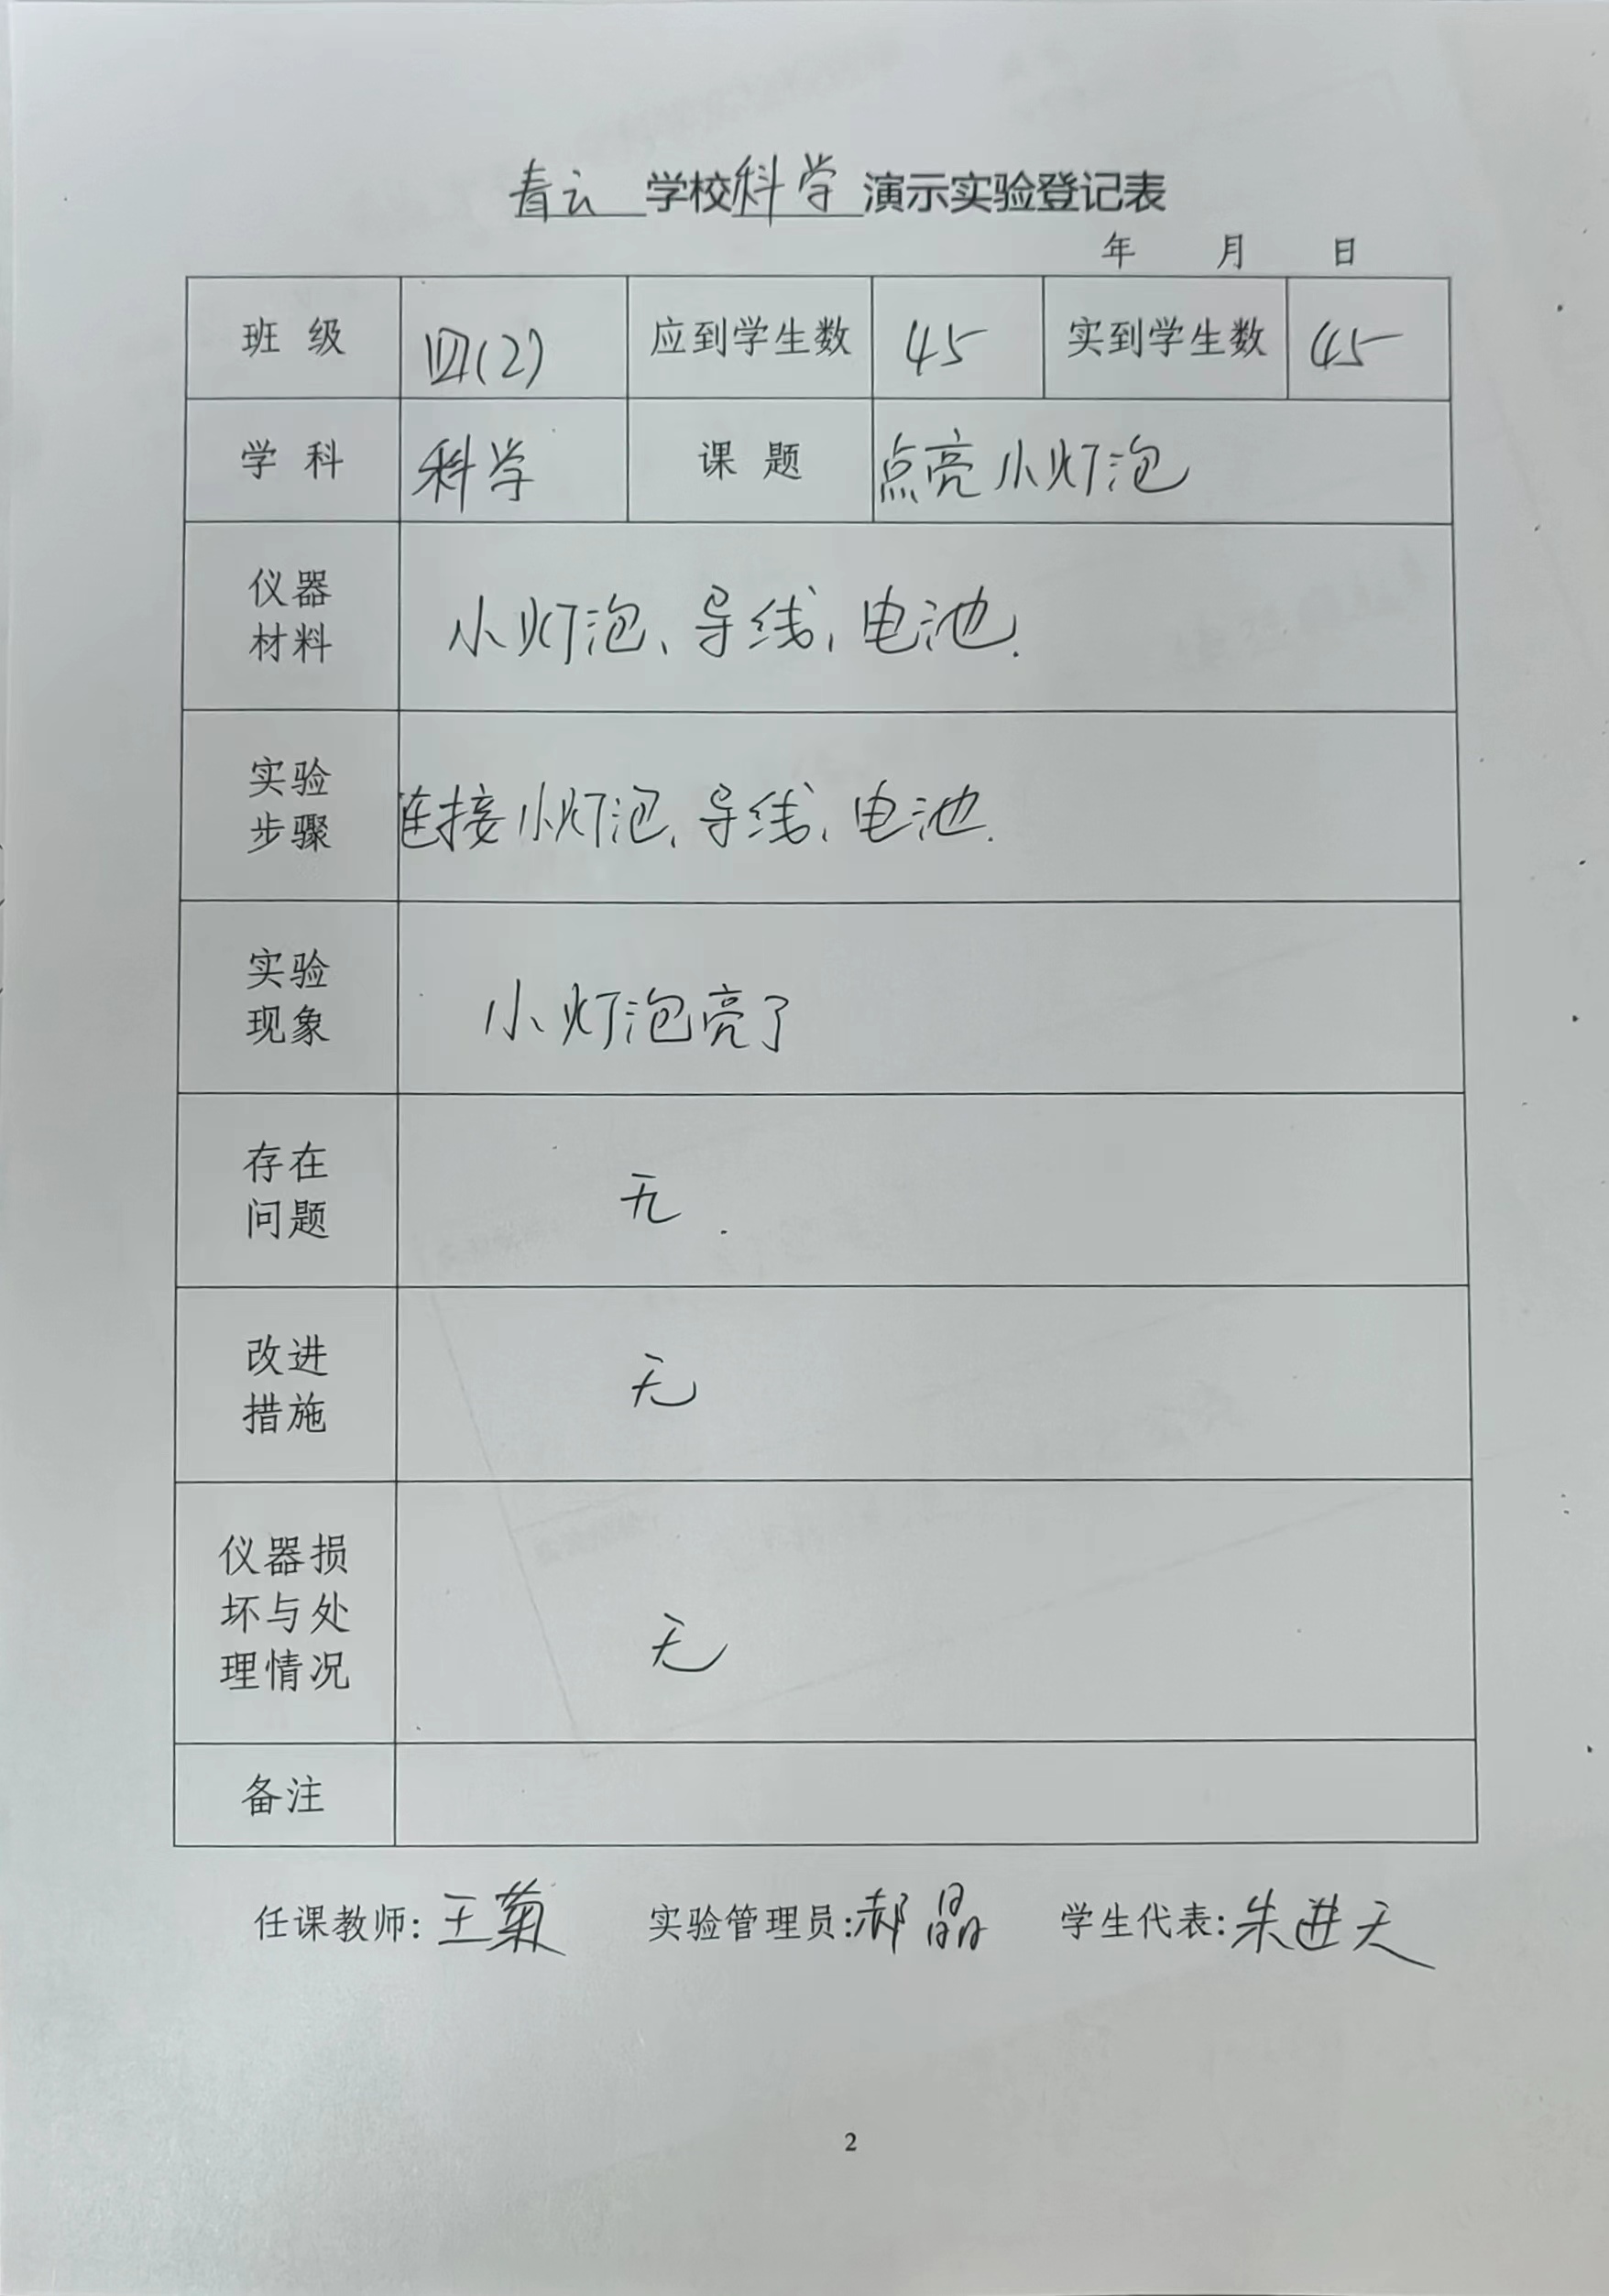 青云 学校 科学 演示实验登记表
年 月 日
班 级 四(2) 应到学生数 45 实到学生数 45
学 科 科学 课 题 点亮小灯泡
仪器
材料
小灯泡、导线、电池.
实验
步骤
连接小灯泡、导线、电池.
实验
现象
小灯泡亮了
存在
问题
无.
改进
措施
无
仪器损
坏与处
理情况
无
备注
任课教师: 王菊 实验管理员: 郝晶 学生代表: 朱进天
2